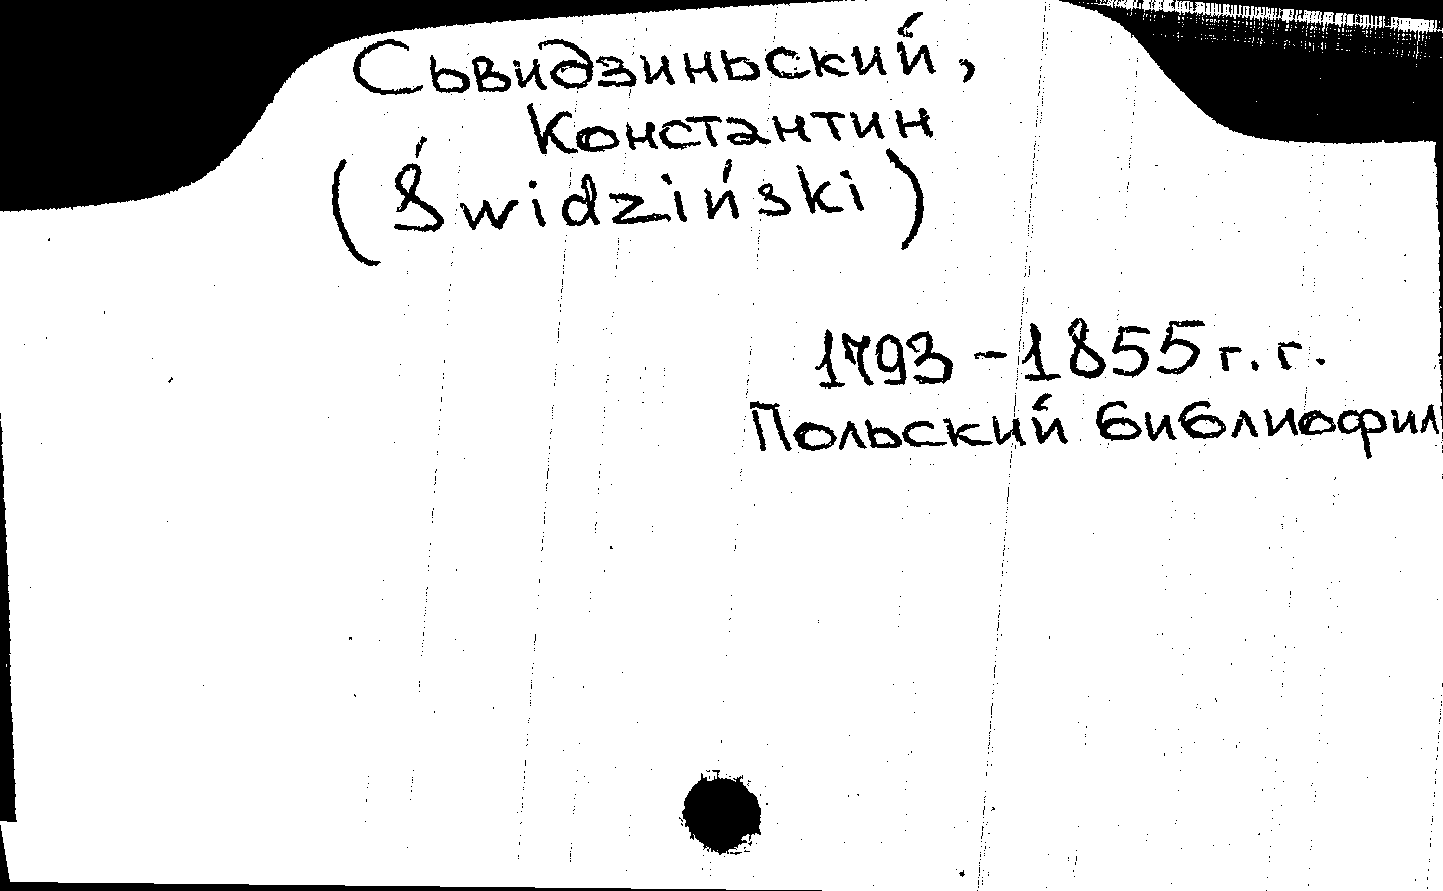 Сьвидзиньский,
Константин
(Świdziński)
1793 – 1855 г. г.
Польский библиофил